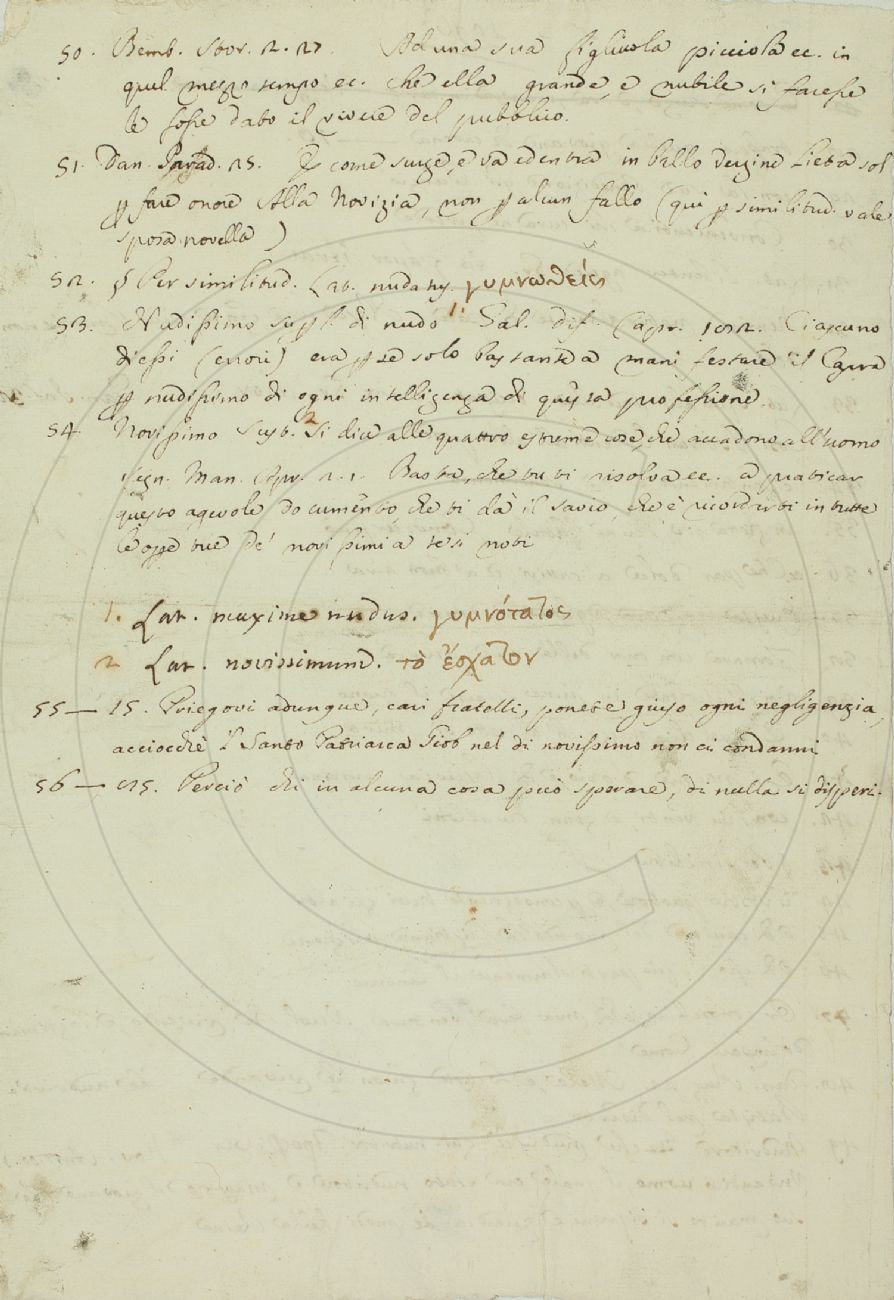 50. Bemb. Stor. 2. 27. Ad una sua figliuola picciola ec. in
quel mezzo tempo ec. che ella grande, e nubile si facesse
le fosse dato il vivere del pubblico.
51. Dan. Parad. 25. E come surge, e va ed entra in ballo Vergine lieta sol
ꝑ fare onore Alla Novizia, non ꝑ alcun fallo (quì ꝑ similitud. vale
sposa novella)
52. § Per similitud. Lat. nudatus. γυμνωθείς
53. Nudissimo superl. di nudo 1. Gal. dif. Capr. 192. Ciascuno
diessi (errori) era ꝑ se solo bastante a manifestare il Capra
ꝑ nudissimo di ogni intelligenza di questa professione.
54. Novissimo Sust. 2 Si dice alle quattro estreme cose, che accadono all'uomo
Segn. Man. Apr. 2. 1. Basta, che tu ti risolva ec. a praticar
questo agevole documento, che ti dà il savio, che è ricordarti in tutte
le opre tue de' novissimi a te si noti
1. Lat. maxime nudus. γυμνότατος
2 Lat. novissimum. τὸ ἔσχατον
55 — 15. Priegovi adunque, cari fratelli, ponete giuso ogni negligenzia,
acciocchè 'l Santo Patriarca Giob nel dì novissimo non ci condanni
56 — 25. Perciò chi in alcuna cosa può sperare, di nulla si disperi.